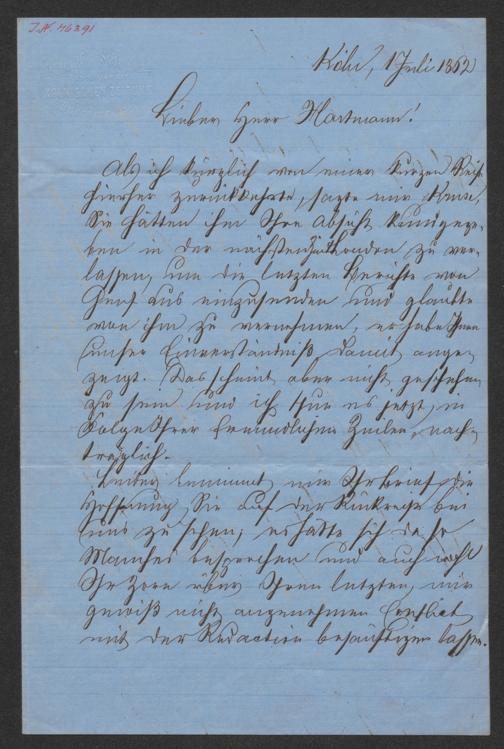 I.N. 46391
Köln, 1 Juli 1862
Lieber Herr Hartmann!
Als ich kürzlich von einer kurzen Reise
hierher zurückkehrte, sagte mir Kruse,
Sie hätten ihm Ihre Absicht kundgege-
ben in der nächsten Zeit London zu ver-
lassen, um die letzten Berichte von
Genf aus einzusenden und glaubte
von ihm zu vernehmen, er habe Ihnen
unser Einverständniß damit ange-
zeigt. Das scheint aber nicht geschehen
zu sein und ich thue es jetzt, in
Folge Ihrer freundlichen Zeilen, nach-
träglich.
Leider benimmt mir Ihr Brief die
Hoffnung Sie auf der Rückreise bei
uns zu sehen; es hätte sich da so
Manches besprechen und auch wohl
Ihr Zorn über Ihren letzten, mir
gewiß nicht angenehmen Conflict
mit der Redaction besänftigen lassen.